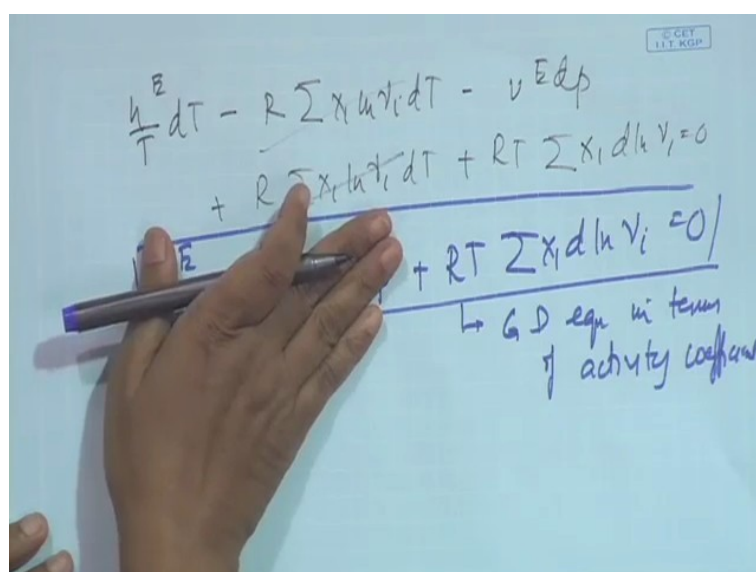 © CET
I.I.T. KGP
h^E/T dT - R Σ x_i ln γ_i dT - v^E dp
+ R Σ x_i ln γ_i dT + RT Σ x_i d ln γ_i = 0
E + RT Σ x_i d ln γ_i = 0
↳ G D eqn in terms
of activity